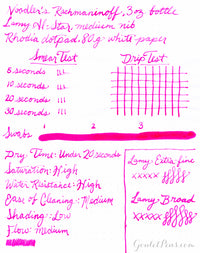 Noodler's Rachmaninoff, 3oz bottle
Lamy Al-Star, medium nib
Rhodia dotpad, 80g white paper
Smear Test
Drip Test
5 seconds
10 seconds
20 seconds
30 seconds
Swabs
1 2 3
Dry Time: Under 20 seconds
Saturation: High
Water Resistance: High
Ease of Cleaning: Medium
Shading: Low
Flow: Medium
Lamy: Extra fine
xxxxx
Lamy: Broad
xxxxx
GouletPens.com